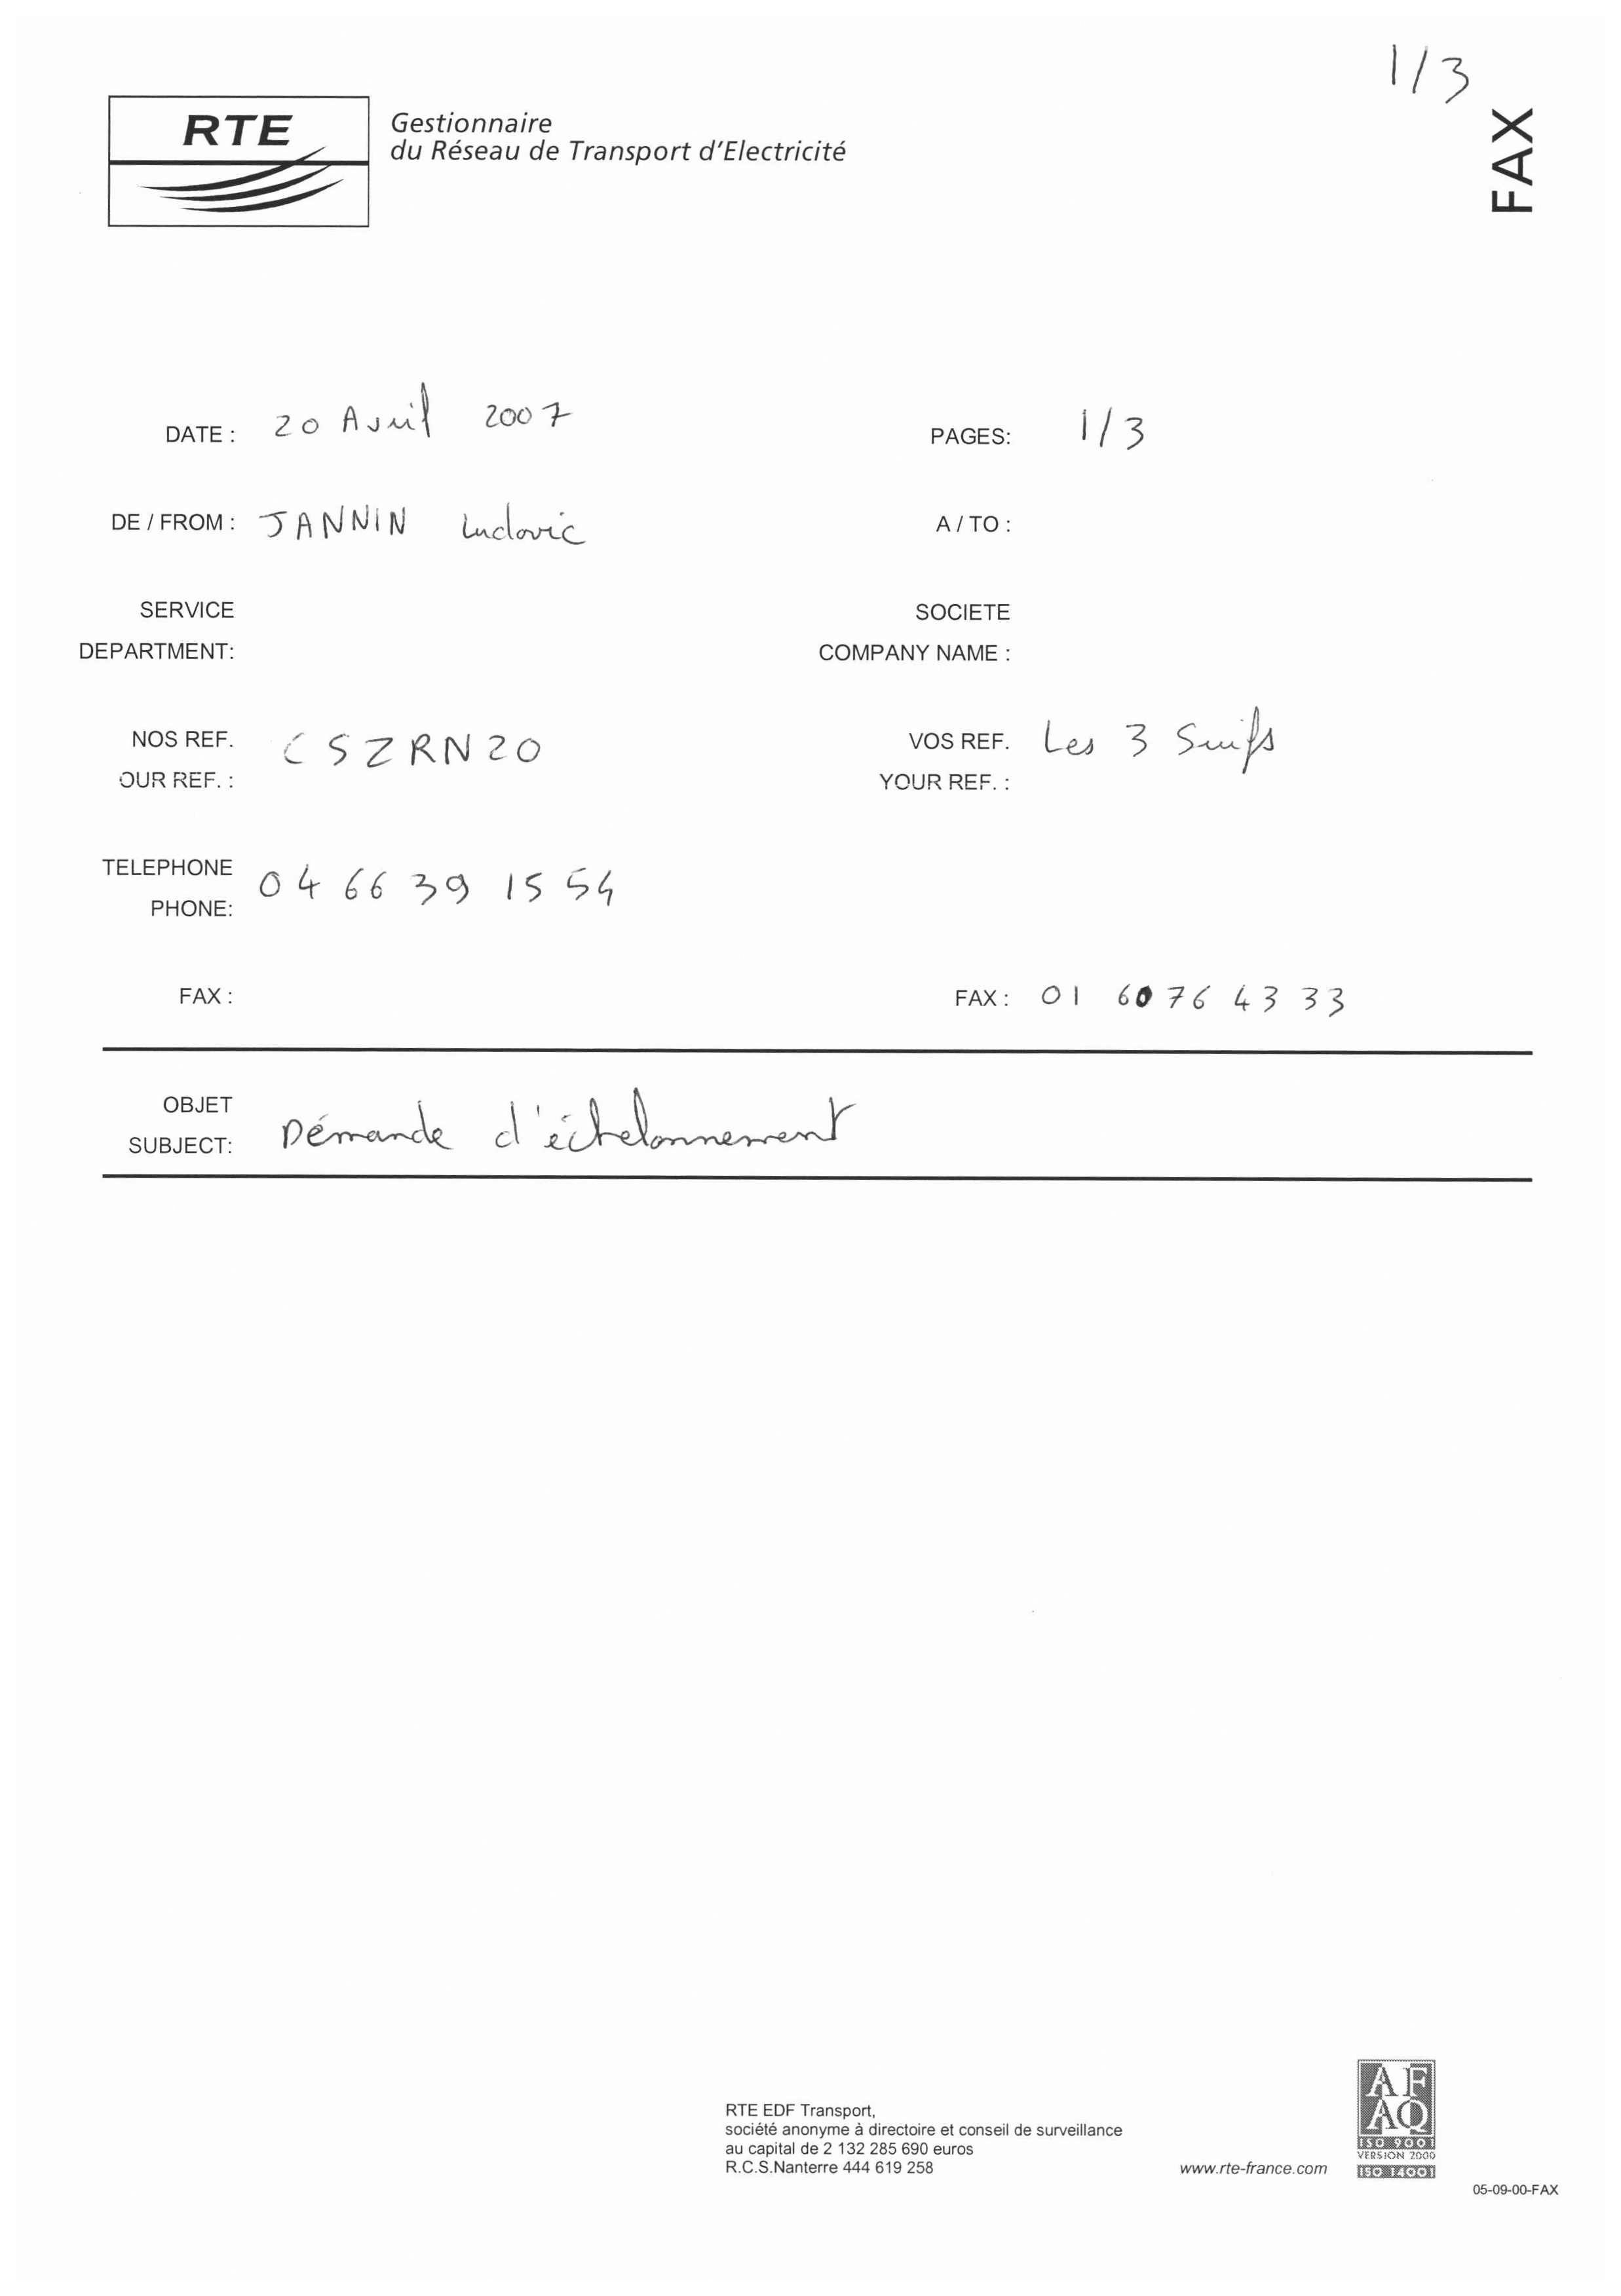 1/3
FAX
RTE
Gestionnaire
du Réseau de Transport d'Electricité
DATE : 20 Avril 2007
PAGES: 1/3
DE / FROM : JANNIN Ludovic
A / TO :
SERVICE
DEPARTMENT:
SOCIETE
COMPANY NAME :
NOS REF.
OUR REF. : CSZRN20
VOS REF.
YOUR REF. : Les 3 Suifs
TELEPHONE
PHONE: 04 66 39 15 54
FAX :
FAX : 01 60 76 43 33
OBJET
SUBJECT: Démande d'échelonnement
RTE EDF Transport,
société anonyme à directoire et conseil de surveillance
au capital de 2 132 285 690 euros
R.C.S.Nanterre 444 619 258
www.rte-france.com
AF
AQ
ISO 9001
VERSION 2000
ISO 14001
05-09-00-FAX